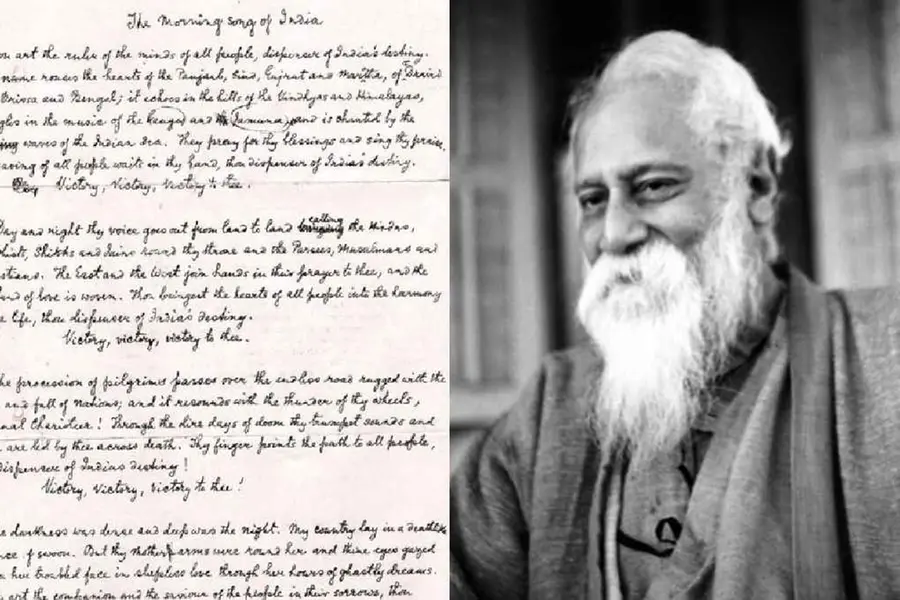 The Morning song of India
ou art the ruler of the minds of all people, dispenser of India's destiny.
name rouses the hearts of the Panjaub, Sind, Gujrat and Maratha, of Dravid
Orissa and Bengal; it echoes in the hills of the Vindhyas and Himalayas,
gles in the music of the and Jamuna and is chanted by the
waves of the Indian Sea. They pray for thy blessings and sing thy praise,
saving of all people waits in thy hand, thou dispenser of India's destiny.
Victory, Victory, Victory to thee.
Day and night thy voice goes out from land to land calling the Hindus,
hists, Shikhs and Jains round thy throne and the Parsees, Musalmans and
stians. The East and the West join hands in their prayer to thee, and the
land of love is woven. Thou bringest the hearts of all people into the harmony
e life, thou dispenser of India's destiny.
Victory, victory, victory to thee.
he procession of pilgrims passes over the endless road rugged with the
and fall of nations; and it resounds with the thunder of thy wheels,
nal Charioteer! Through the dire days of doom thy trumpet sounds and
are led by thee across death. Thy finger points the path to all people,
dispenser of India's destiny!
Victory, victory, victory to thee!
e darkness was dense and deep was the night. My country lay in a deathlike
nce of swoon. But thy mother arms were round her and thine eyes gazed
n her troubled face in sleepless love through her hours of ghastly dreams.
art the companion and the saviour of the people in their sorrows, thou